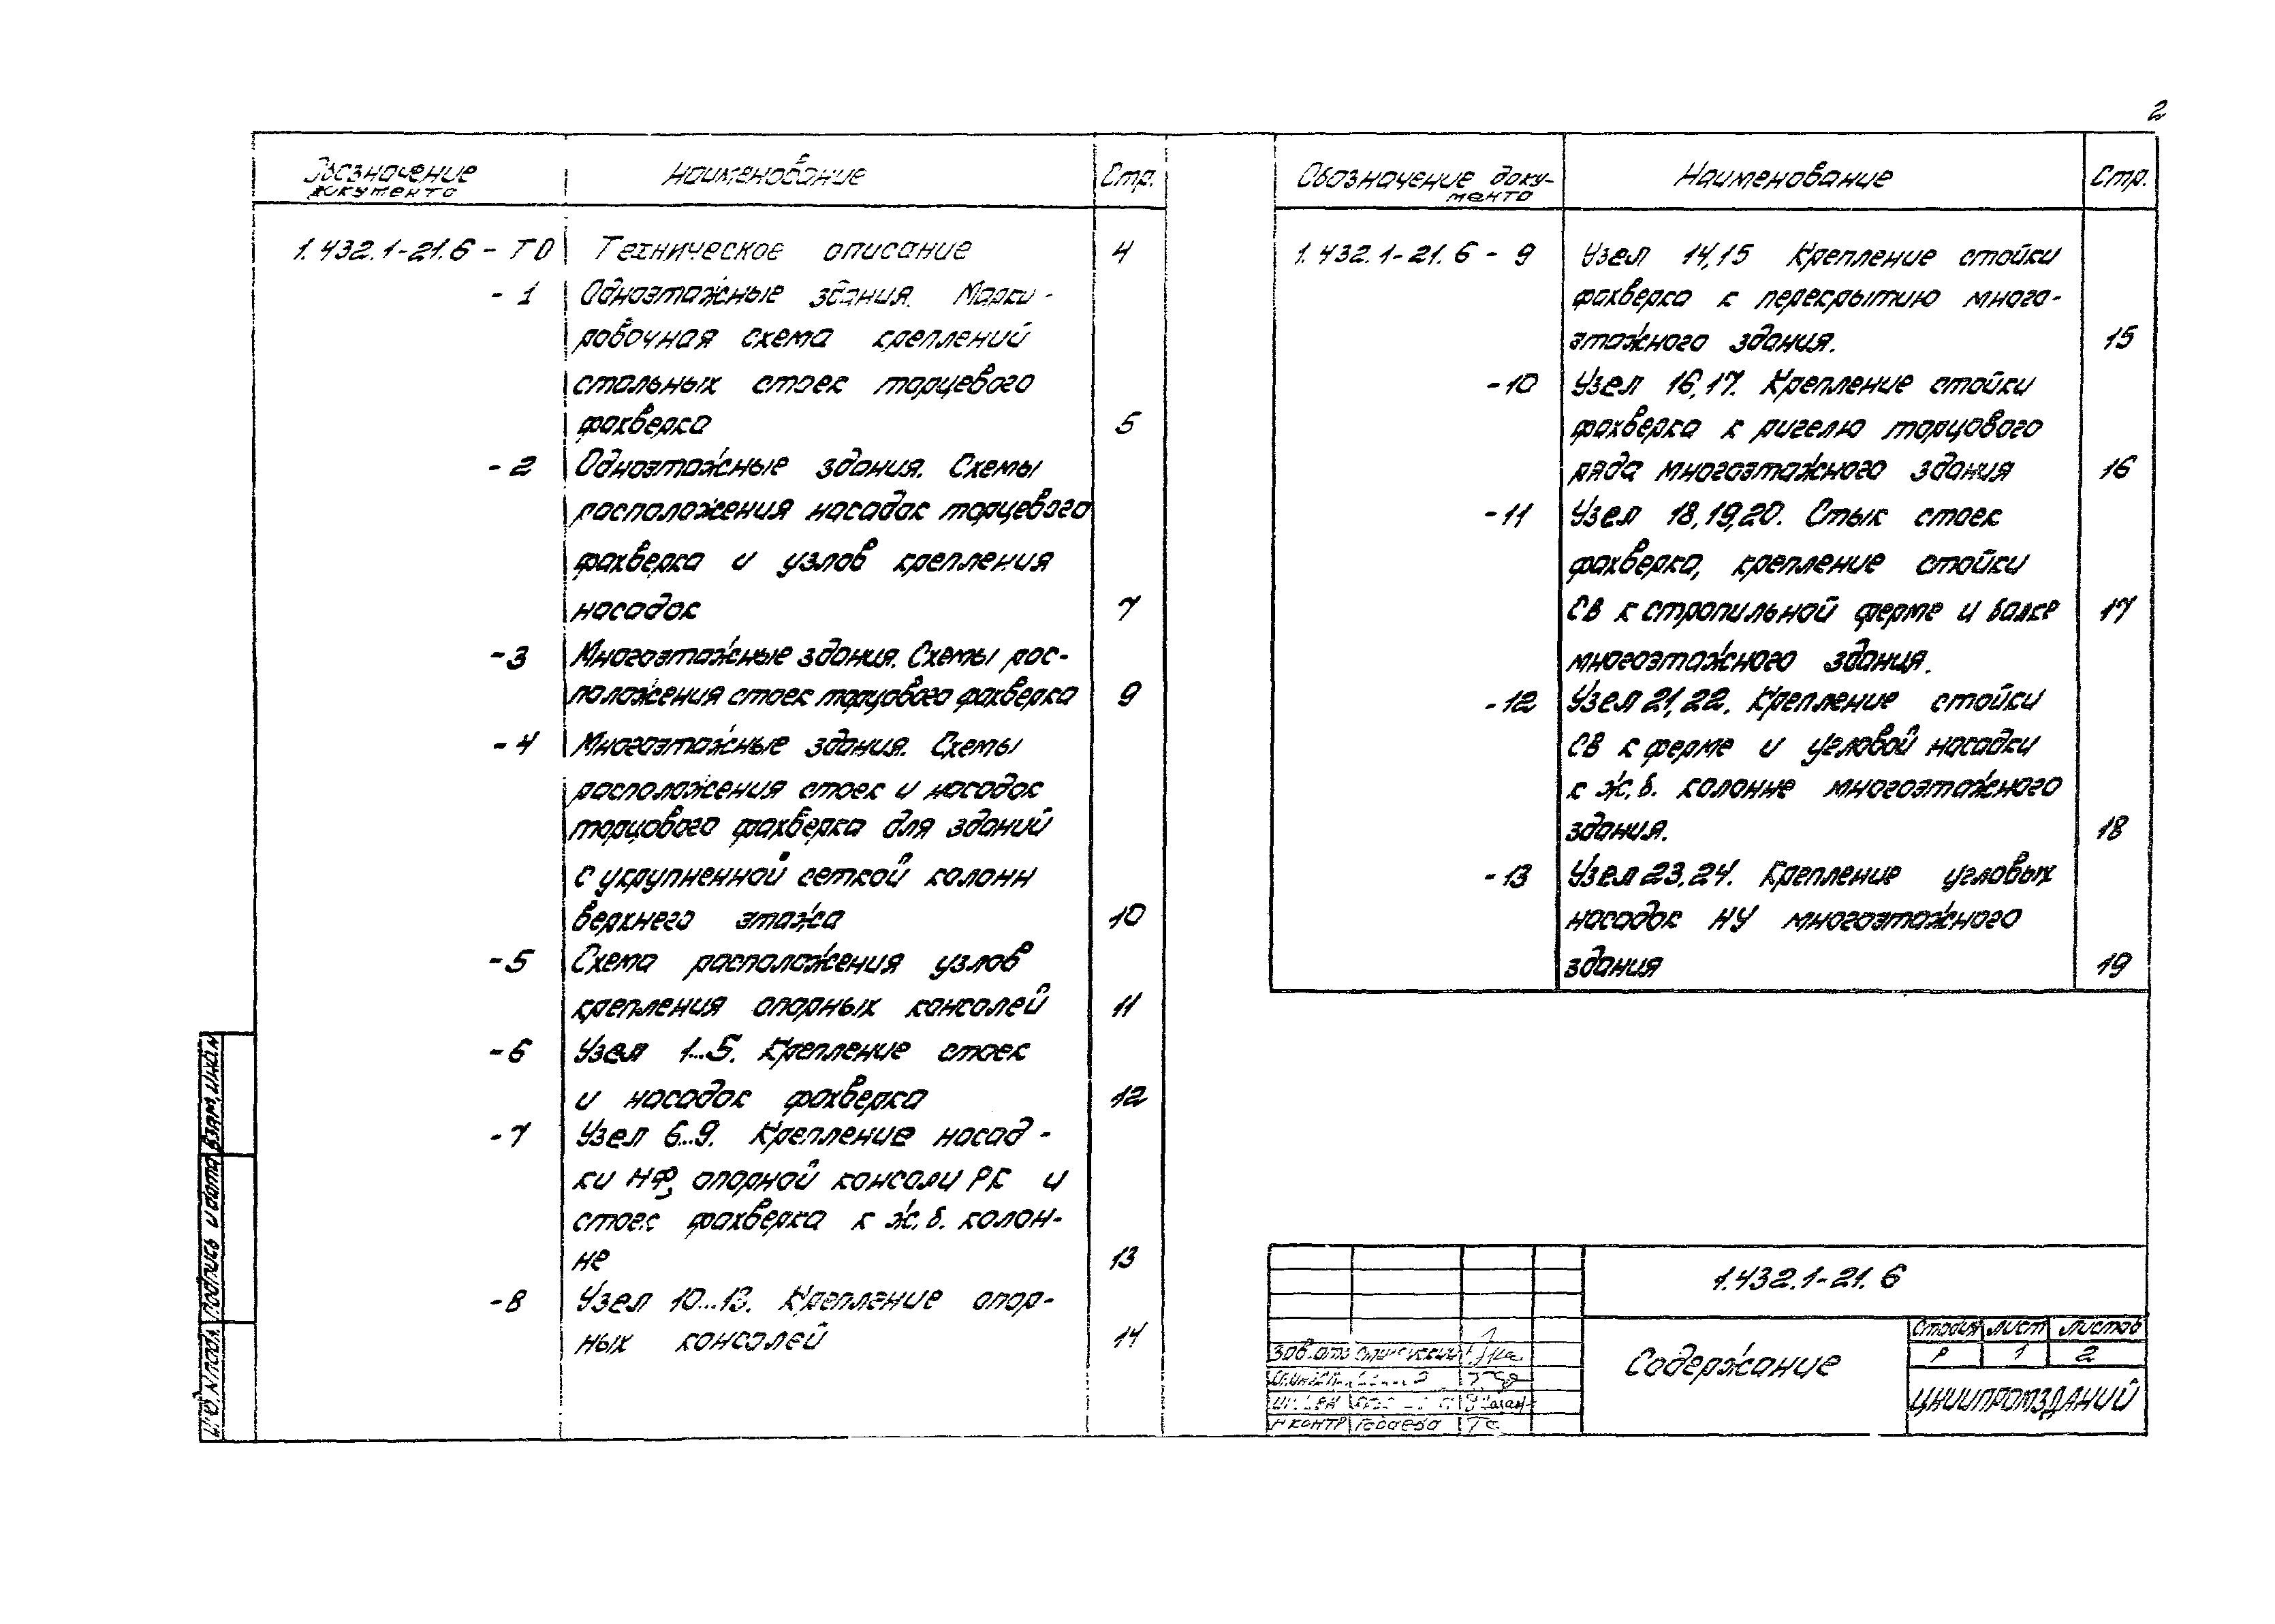 2
Обозначение документа
Наименование
Стр.
1.432.1-21.6 - ТО Техническое описание 4
- 1 Одноэтажные здания. Марки-
ровочная схема креплений
стальных стоек торцевого
фахверка 5
- 2 Одноэтажные здания. Схемы
расположения насадок торцевого
фахверка и узлов крепления
насадок 7
- 3 Многоэтажные здания. Схемы рас-
положения стоек торцового фахверка 9
- 4 Многоэтажные здания. Схемы
расположения стоек и насадок
торцового фахверка для зданий
с укрупненной сеткой колонн
верхнего этажа 10
- 5 Схема расположения узлов
крепления опорных консолей 11
- 6 Узел 1...5. Крепление стоек
и насадок фахверка 12
- 7 Узел 6...9. Крепление насад-
ки НФ, опорной консоли РК и
стоек фахверка к ж.б. колон-
не 13
- 8 Узел 10...13. Крепление опор-
ных консолей 14
Обозначение доку-
мента
Наименование
Стр.
1.432.1-21.6 - 9 Узел 14,15 Крепление стойки
фахверка к перекрытию много-
этажного здания. 15
-10 Узел 16,17. Крепление стойки
фахверка к ригелю торцового
ряда многоэтажного здания 16
-11 Узел 18,19,20. Стык стоек
фахверка, крепление стойки
СВ к стропильной ферме и балке 17
многоэтажного здания.
-12 Узел 21,22. Крепление стойки
СВ к ферме и угловой насадки
к ж.б. колонне многоэтажного
здания. 18
-13 Узел 23,24. Крепление угловых
насадок НУ многоэтажного
здания 19
1.432.1-21.6
Содержание
Стадия Лист Листов
Р 1 2
ЦНИИПРОМЗДАНИЙ
Зав.отд
Н.контр
Взам.инв.№
Подпись и дата
Инв.№ подл.